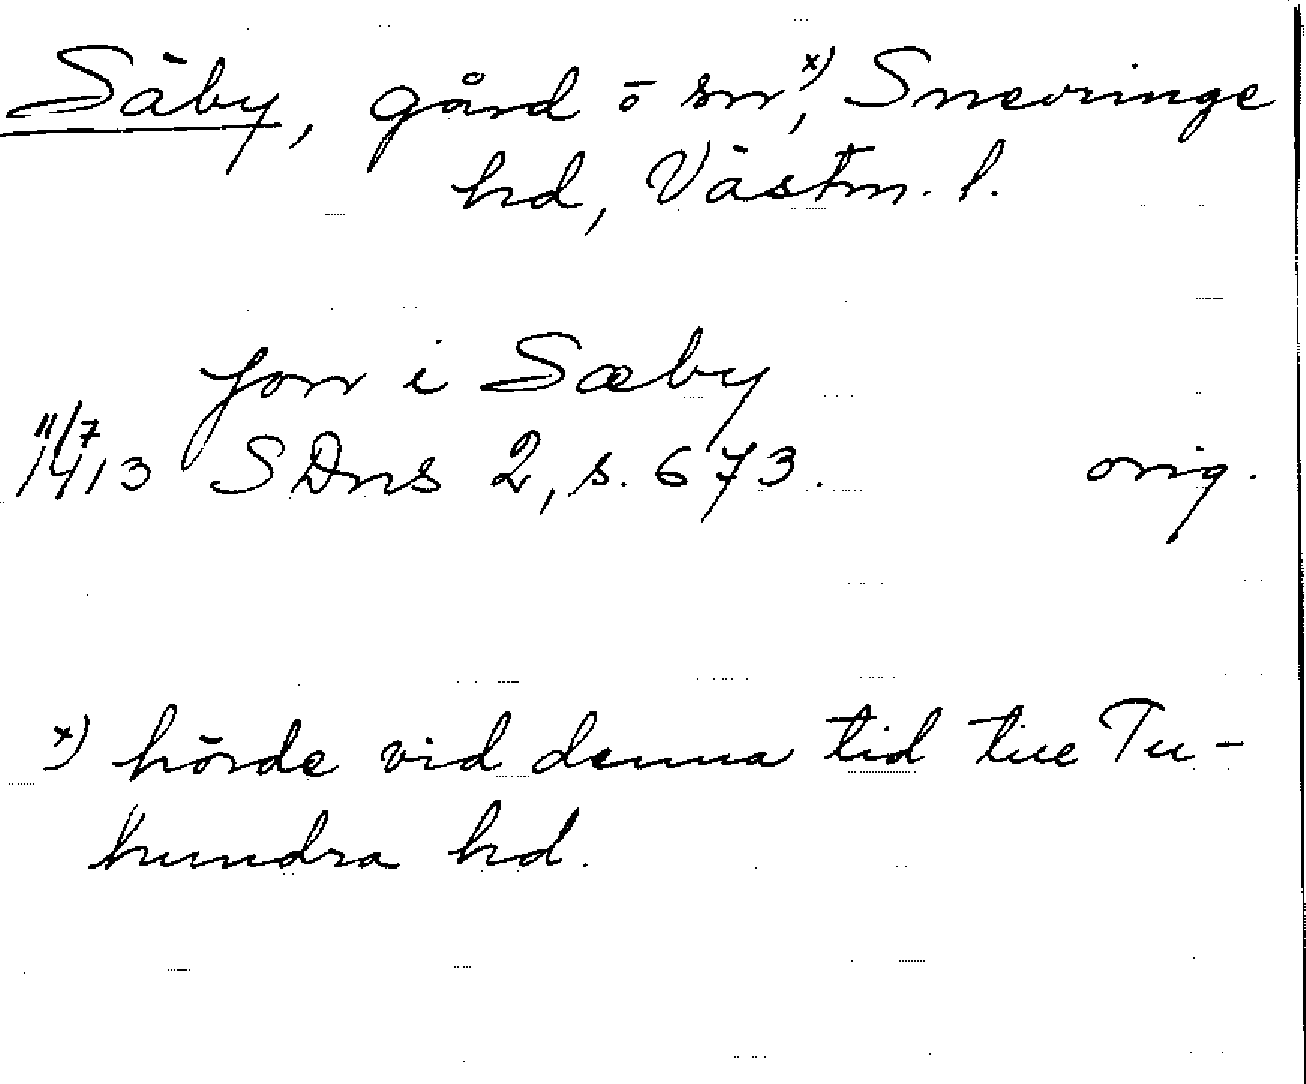 Säby, gård o sn x), Snevringe
hd, Västm. l.
Jon i Sæby
11/7
1413 SDns 2, s. 673. orig.
x) hörde vid denna tid till Tu-
hundra hd.